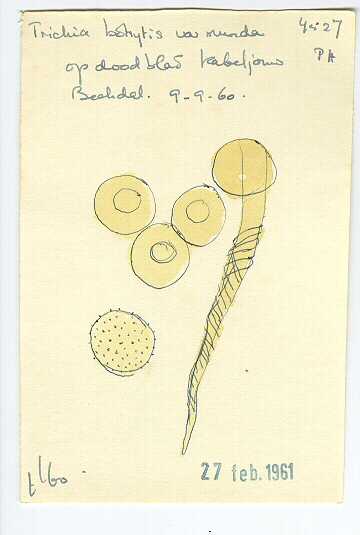 Trichia botrytis var munda
op dood blad Kabeljouw
Beekdal. 9-9-60.
27 feb. 1961